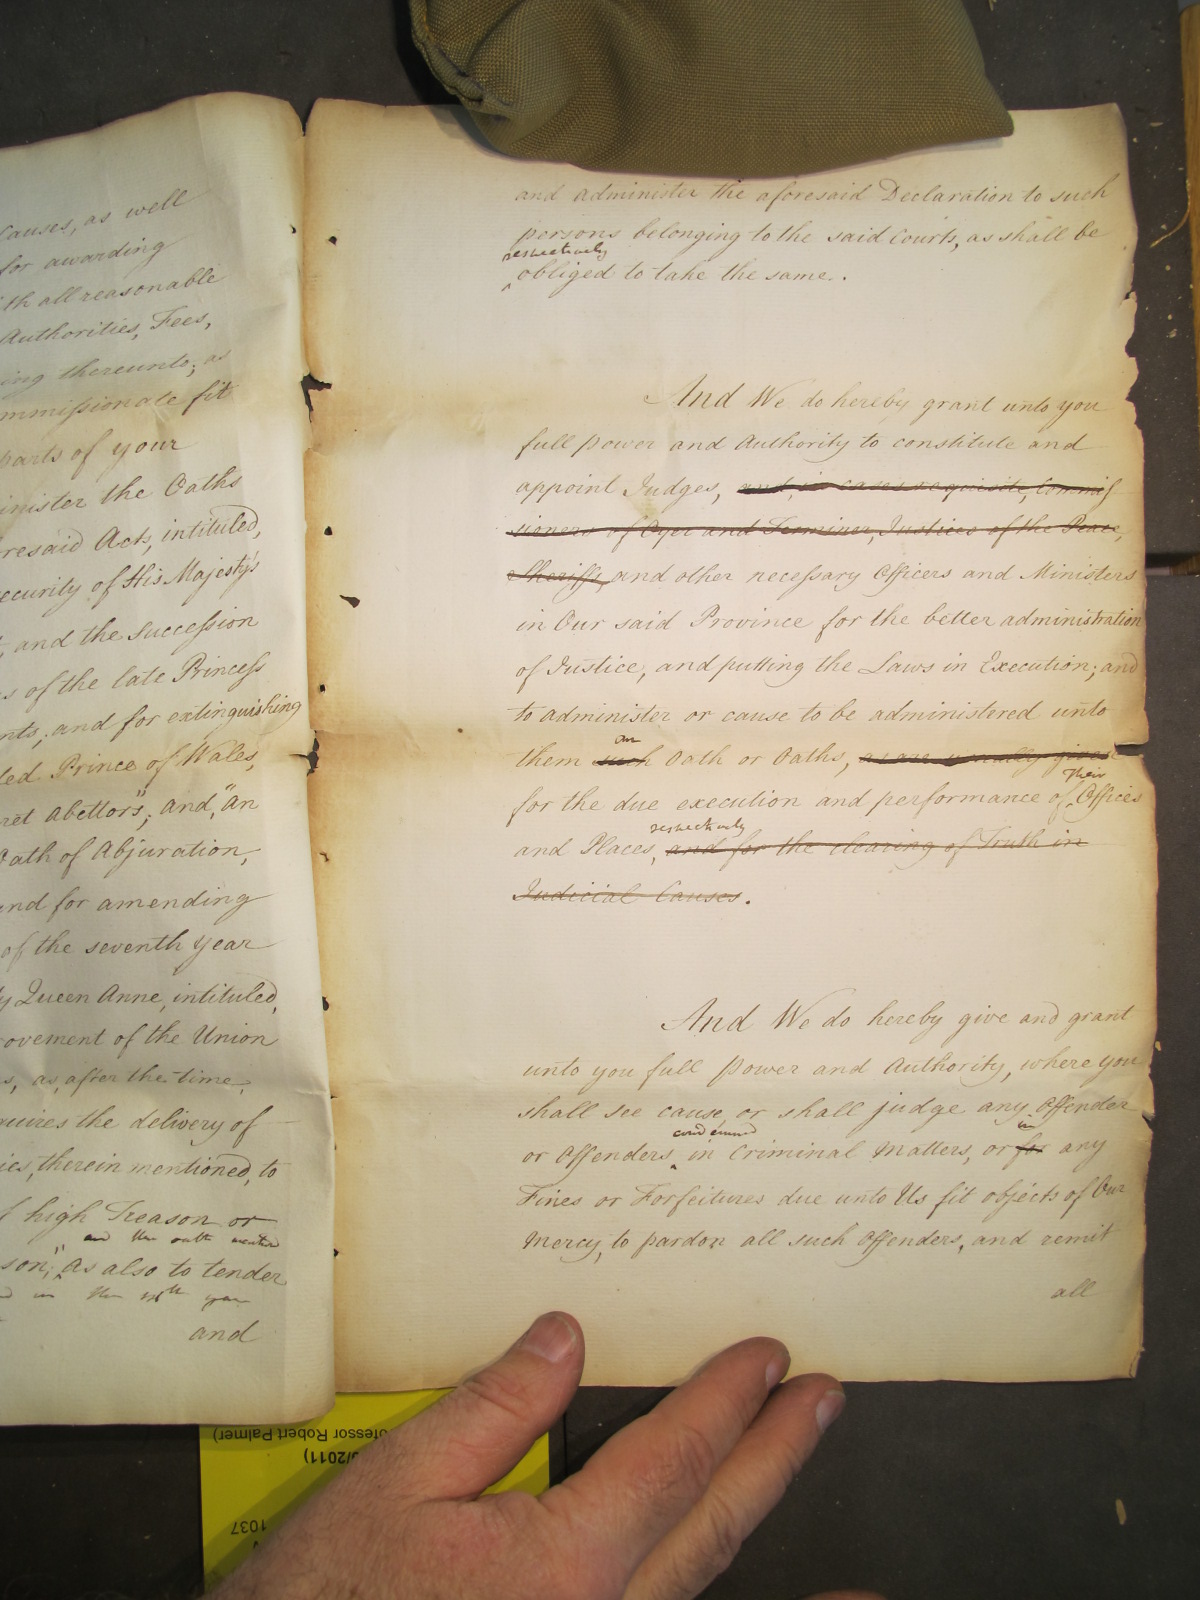 Causes, as well
for awarding
th all reasonable
Authorities, Fees,
ing thereunto; as
mmissionate fit
parts of your
inister the Oaths
resaid Act, intituled,
ecurity of His Majesty's
, and the succession
s of the late Princess
nts; and for extinguishing
led Prince of Wales,
ret Abettors"; and, "An
Oath of Abjuration,
and for amending
of the seventh year
y Queen Anne, intituled,
rovement of the Union
s, as, after the time,
quires the delivery of
ies, therein mentioned, to
f high Treason or
and the oath
son;" As also to tender
in the year
and
and administer the aforesaid Declaration to such
persons belonging to the said Courts, as shall be
respectively
obliged to take the same.
And We do hereby grant unto you
full power and Authority to constitute and
appoint Judges, and, in cases requisite, Commis
sioners of Oyer and Terminer, Justices of the Peace,
Sheriffs, and other necessary Officers and Ministers
in Our said Province for the better administration
of Justice, and putting the Laws in Execution; and
to administer or cause to be administered unto
an
them such Oath or Oaths, as are usually given
their
for the due execution and performance of Offices
respectively
and Places, and for the clearing of Truth in
Judicial Causes.
And We do hereby give and grant
unto you full power and Authority, where you
shall see cause, or shall judge any Offender
condemned in
or Offenders, in Criminal Matters, or for any
Fines or Forfeitures due unto Us fit objects of Our
Mercy, to pardon all such Offenders, and remit
all
ofessor Robert Palmer)
/2011)
1037